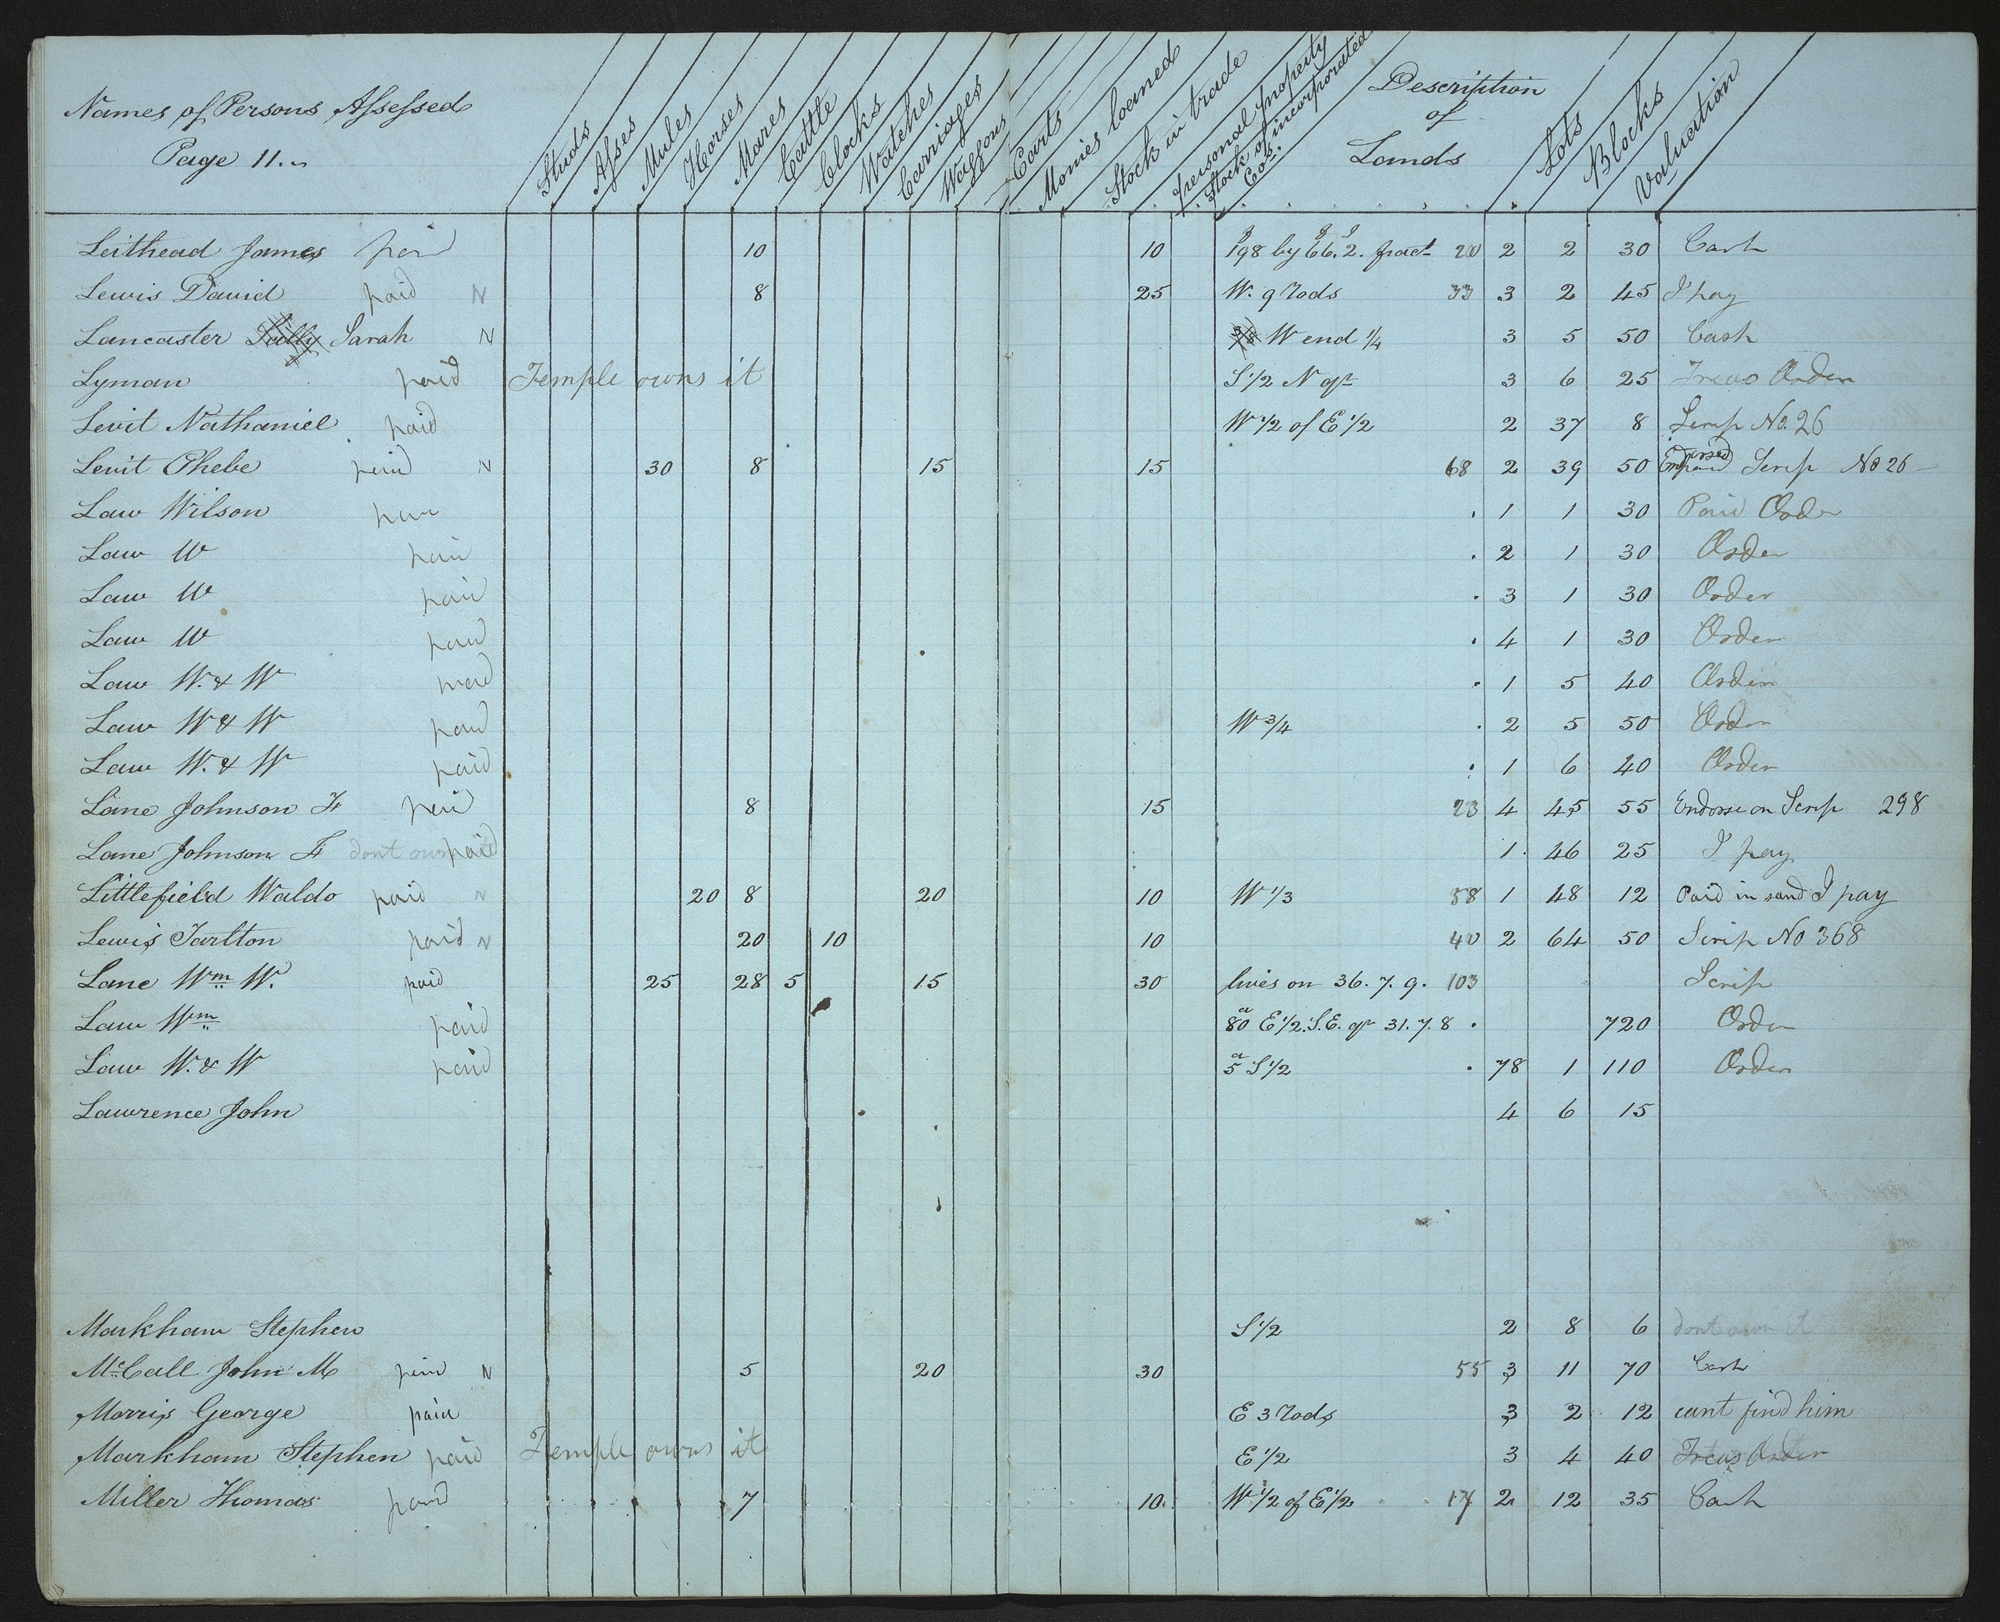 Names of Persons Assessed
Page 11.
Studs
Asses
Mules
Horses
Mares
Cattle
Clocks
Watches
Carriages
Waggons
Carts
Monies loaned
Stock in trade
Personal property
Stock of incorporated Cos.
Description of Lands
Lots
Blocks
Valuation
Leithead James paid 10 10 198 by 66. 2. fract 20 2 2 30 Cash
Lewis David paid N 8 25 W. 9 Rods 33 3 2 45 I pay
Lancaster Sarah N W end 1/4 3 5 50 Cash
Lyman paid Temple owns it S 1/2 N qr 3 6 25 Treas Order
Levit Nathaniel paid W 1/2 of E 1/2 2 37 8 Scrip No. 26
Levit Phebe paid N 30 8 15 15 68 2 39 50 Endorsed Scrip No 26
Law Wilson paid 1 1 30 Paid Order
Law W paid 2 1 30 Order
Law W paid 3 1 30 Order
Law W paid 4 1 30 Order
Law W. & W paid 1 5 40 Order
Law W & W paid W 3/4 2 5 50 Order
Law W. & W paid 1 6 40 Order
Lane Johnson F paid 8 15 23 4 45 55 Endorse on Scrip 298
Lane Johnson F dont own paid 1 46 25 I pay
Littlefield Waldo paid N 20 8 20 10 W 1/3 58 1 48 12 Paid in sand I pay
Lewis Tarlton paid N 20 10 10 40 2 64 50 Scrip No 368
Lane Wm W. paid 25 28 5 15 30 lives on 36. 7. 9. 103 Scrip
Law Wm paid 80 a E 1/2. S.E. qr 31. 7. 8 720 Order
Law W. & W paid 5 a S 1/2 78 1 110 Order
Lawrence John 4 6 15
Markham Stephen S 1/2 2 8 6 dont own it
McCall John M paid N 5 20 30 55 3 11 70 Cash
Morris George paid E 3 Rods 3 2 12 cant find him
Markham Stephen paid Temple owns it E 1/2 3 4 40 Treas Order
Miller Thomas paid 7 10 W 1/2 of E 1/2 17 2 12 35 Cash